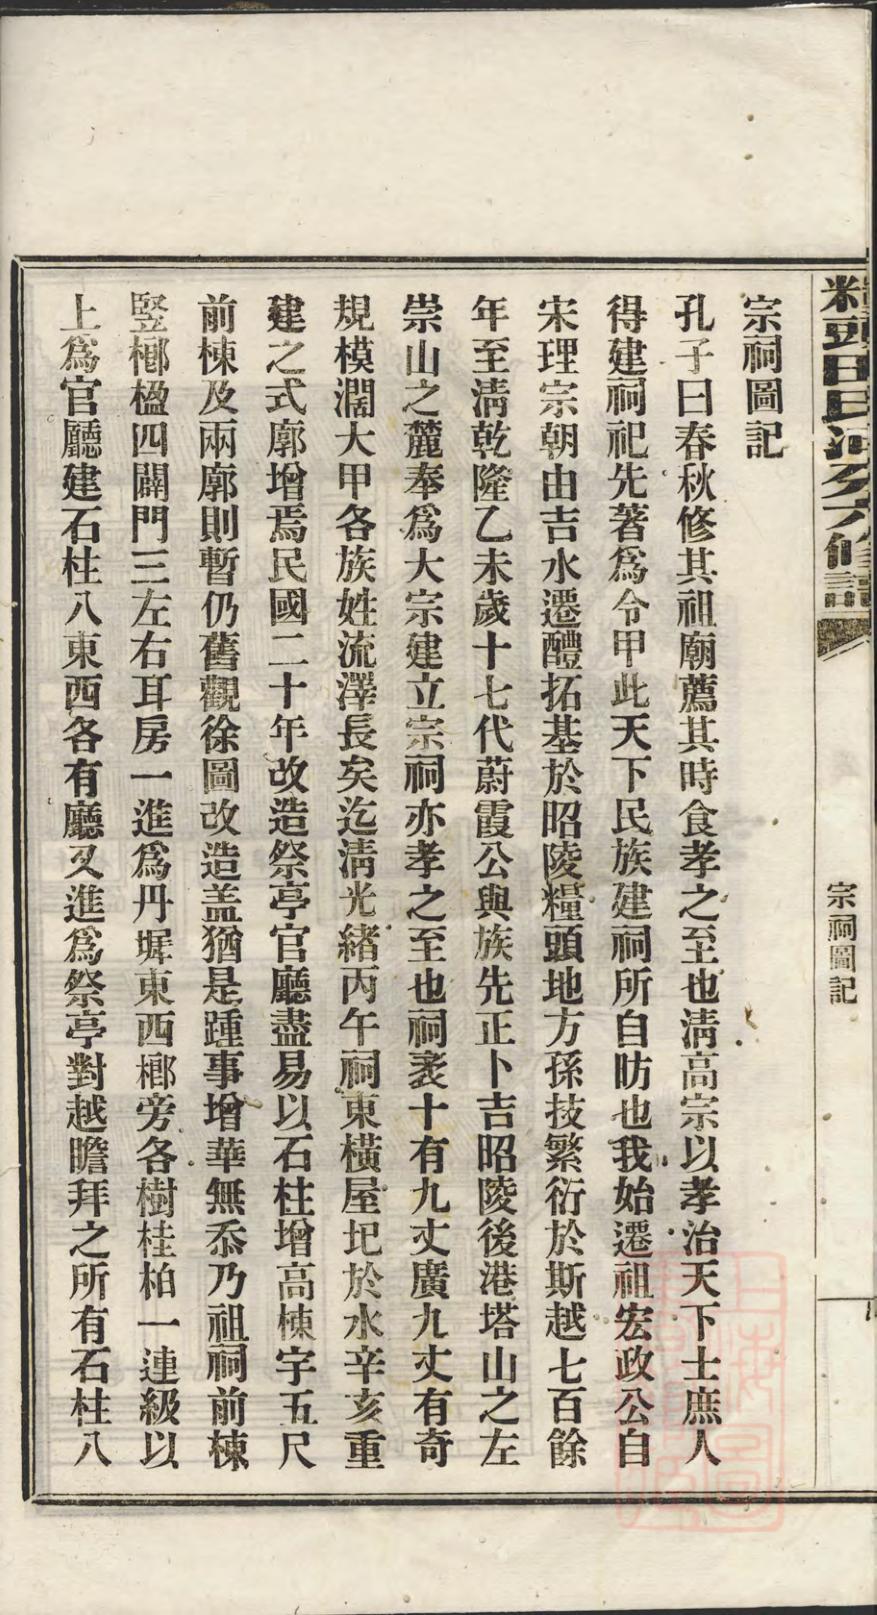 宗祠圖記
孔子曰春秋修其祖廟薦其時食孝之至也淸高宗以孝治天下士庶人
得建祠祀先著爲令甲此天下民族建祠所自昉也我始遷祖宏政公自
宋理宗朝由吉水遷醴拓基於昭陵糧頭地方孫技繁衍於斯越七百餘
年至淸乾隆乙未歲十七代蔚霞公與族先正卜吉昭陵後港塔山之左
崇山之麓奉爲大宗建立宗祠亦孝之至也祠袤十有九丈廣九丈有奇
規模濶大甲各族姓流澤長矣迄淸光緒丙午祠東橫屋圮於水辛亥重
建之式廓增焉民國二十年改造祭亭官廳盡易以石柱增高棟宇五尺
前棟及兩廓則暫仍舊觀徐圖改造盖猶是踵事增華無忝乃祖祠前棟
竪榔楹四闢門三左右耳房一進爲丹墀東西榔旁各樹桂柏一連級以
上爲官廳建石柱八東西各有廳又進爲祭亭對越瞻拜之所有石柱八
糧頭田氏
六修譜
宗祠圖記